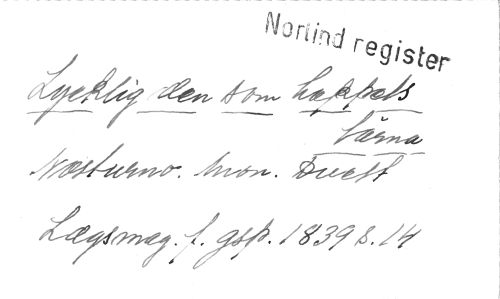 Nortind register
Lycklig den som hoppets
tärna
Nocturno. Anon. Duett
Lægsmag. f. gsp. 1839 s. 14